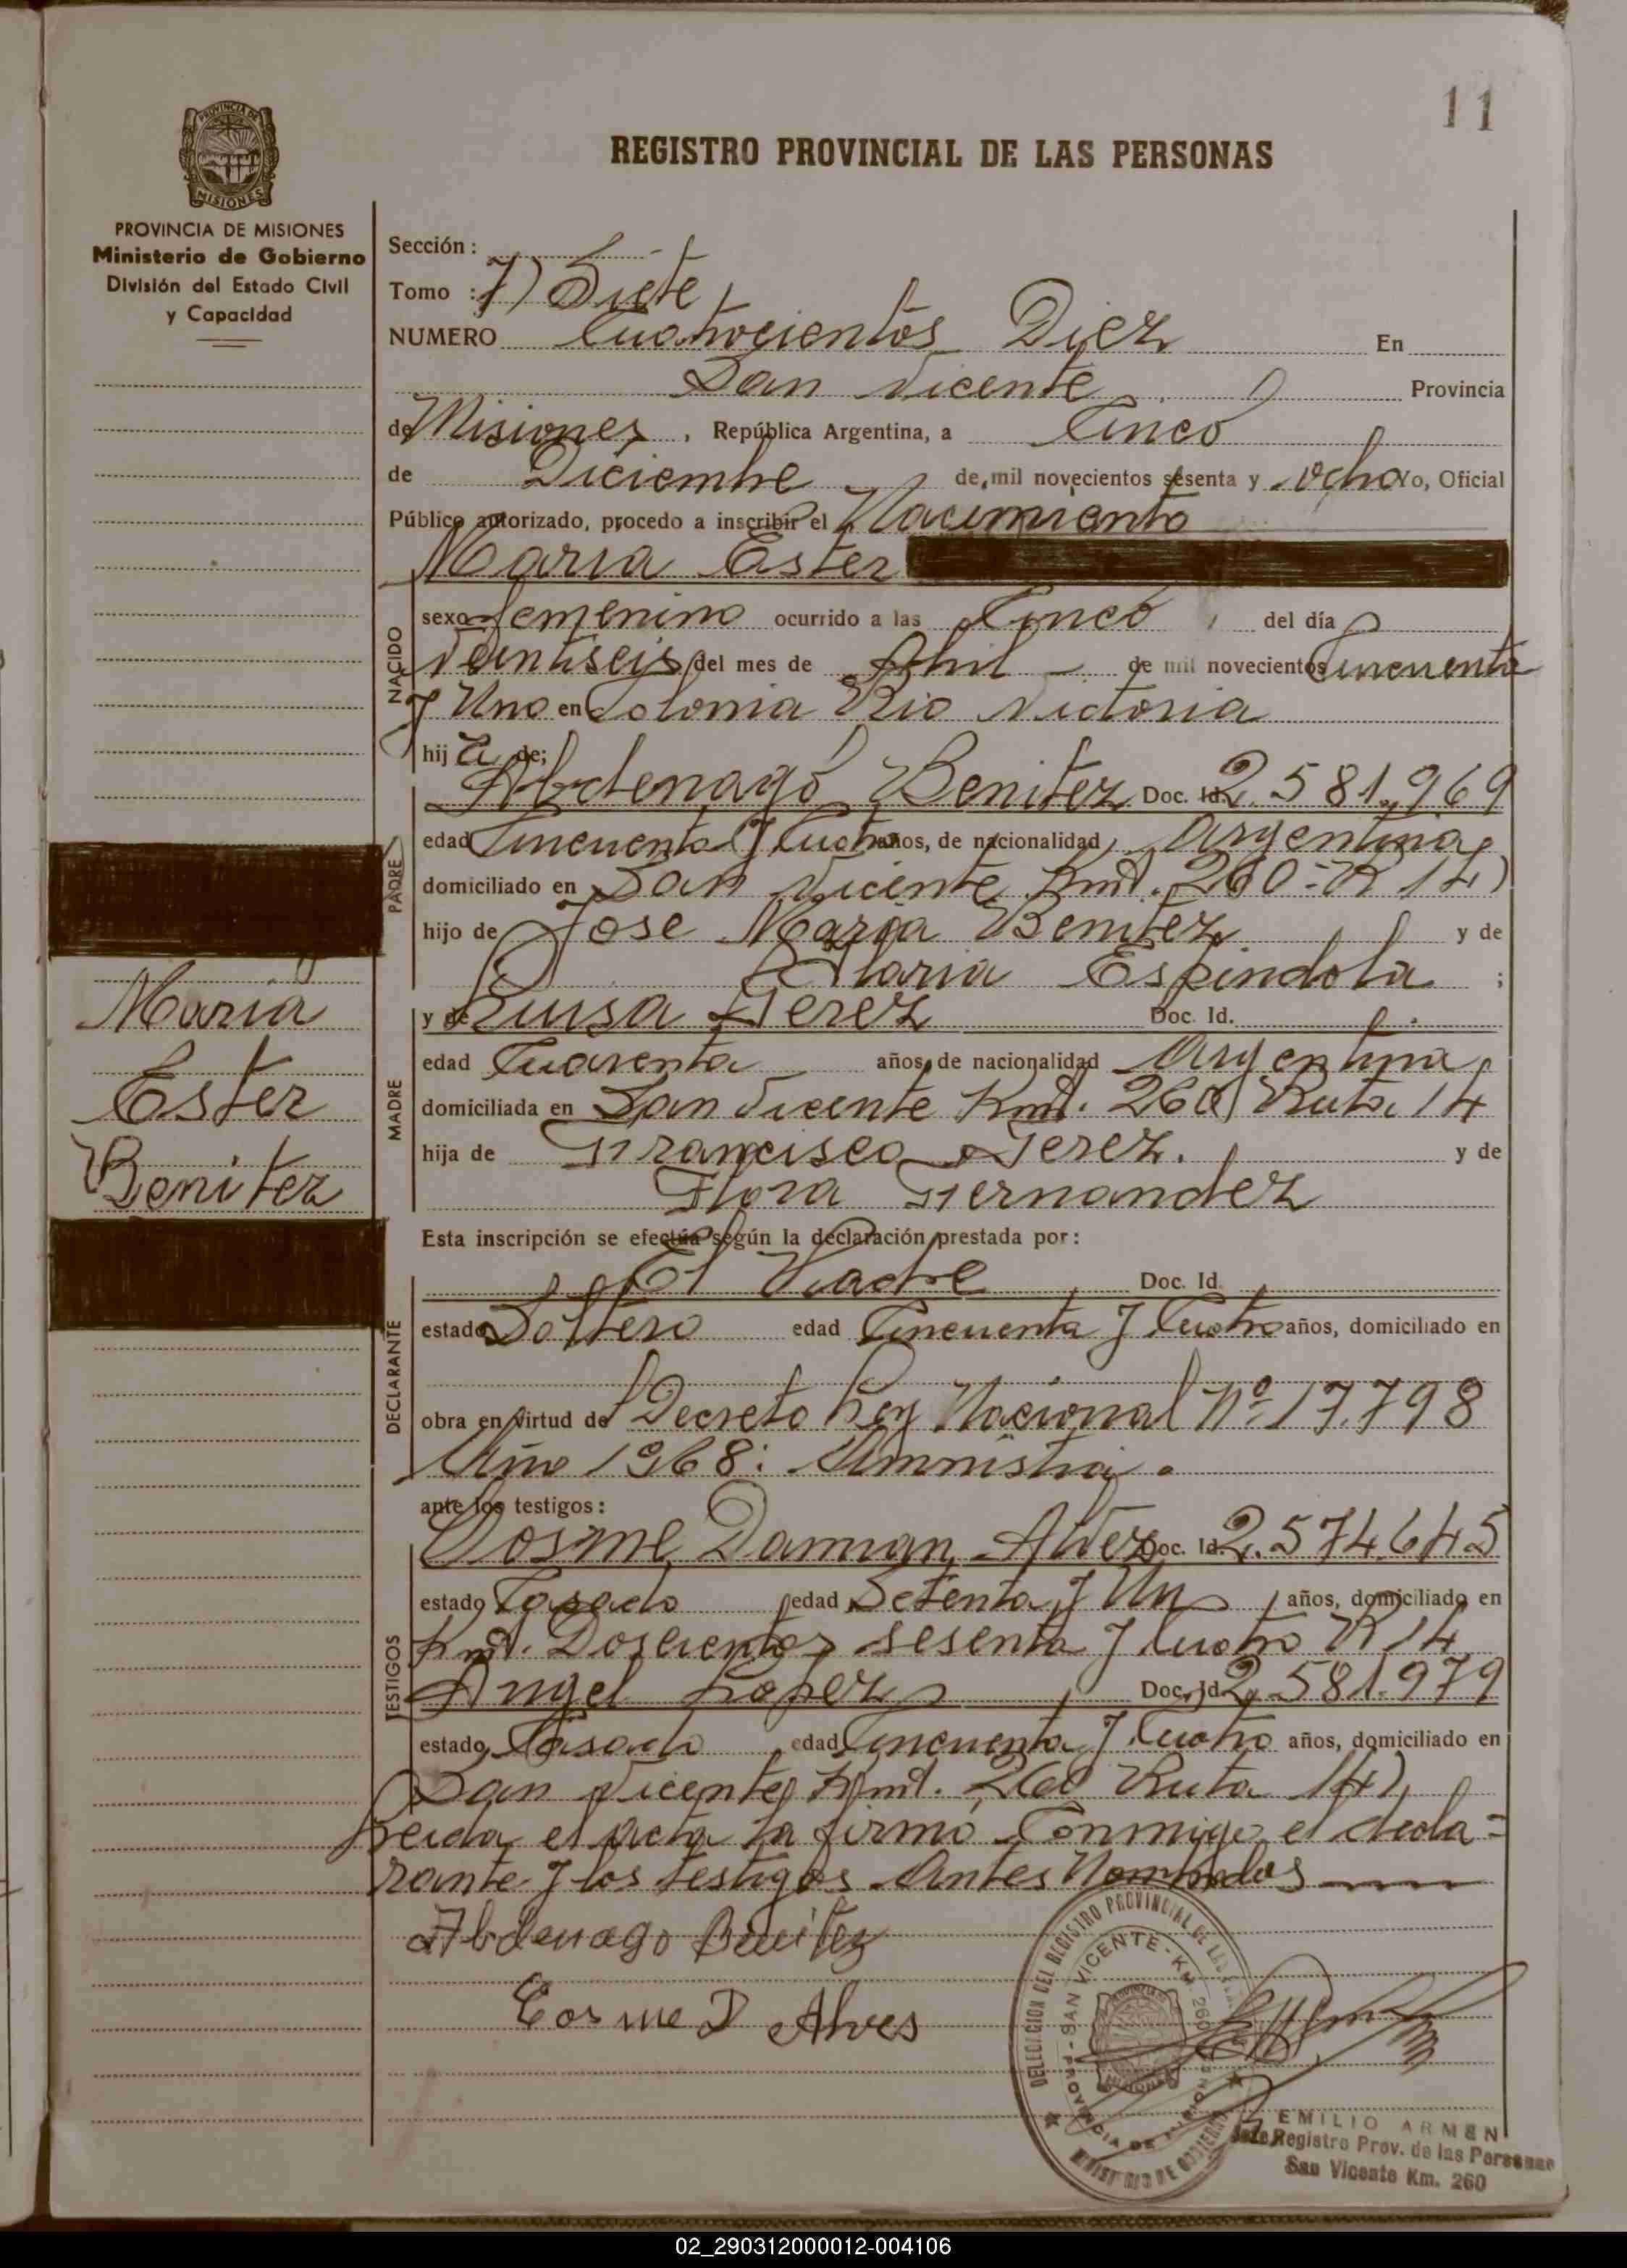 11
REGISTRO PROVINCIAL DE LAS PERSONAS
PROVINCIA DE
MISIONES
PROVINCIA DE MISIONES
Ministerio de Gobierno
División del Estado Civil
y Capacidad
Sección :
Tomo : 7) Siete
NUMERO Cuatrocientos Diez En
San Vicente Provincia
de Misiones, República Argentina, a Cinco
de Diciembre de mil novecientos sesenta y ocho Yo, Oficial
Público autorizado, procedo a inscribir el Nacimiento
Maria Ester
NACIDO
sexo femenino ocurrido a las Cinco del día
Veintiseis del mes de Abril de mil novecientos Cincuenta
y Uno en Colonia Rio Victoria
hija de;
PADRE
Abdenago Benitez Doc. Id. 2.581.969
edad Cincuenta y Cuatro años, de nacionalidad Argentina
domiciliado en San Vicente Kmt. 260-R 14)
hijo de Jose Maria Benitez y de
Maria Espindola ;
MADRE
y de Luisa Jerez Doc. Id.
edad Cuarenta años, de nacionalidad Argentina
domiciliada en San Vicente Kmt. 260 Ruta 14
hija de Francisco Jerez. y de
Flora Fernandez
Maria
Ester
Benitez
Esta inscripción se efectúa según la declaración prestada por :
DECLARANTE
El Padre Doc. Id.
estado Soltero edad Cincuenta y Cuatro años, domiciliado en
obra en virtud de Decreto Ley Nacional Nº 17.798
Año 1968: Amnistia.
ante los testigos :
TESTIGOS
Cosme Damian Alvez Doc. Id. 2.574.645
estado Casado edad Setenta y Un años, domiciliado en
Kmt. Doscientos sesenta y Cuatro R 14
Angel Lopez Doc. Id. 2.581.979
estado Casado edad Cincuenta y Cuatro años, domiciliado en
San Vicente Kmt. 260 Ruta 14)
Leida el acta la firmó Conmigo el decla=
rante y los testigos Antes Nombrados
Abdenago Benitez
Cosme D Alves
DELEGACION DEL REGISTRO PROVINCIAL DE LAS
SAN VICENTE - KM 260
PROVINCIA DE MISIONES
MINISTERIO DE GOBIERNO
EMILIO ARMEN
Jefe Registro Prov. de las Personas
San Vicente Km. 260
02_290312000012-004106